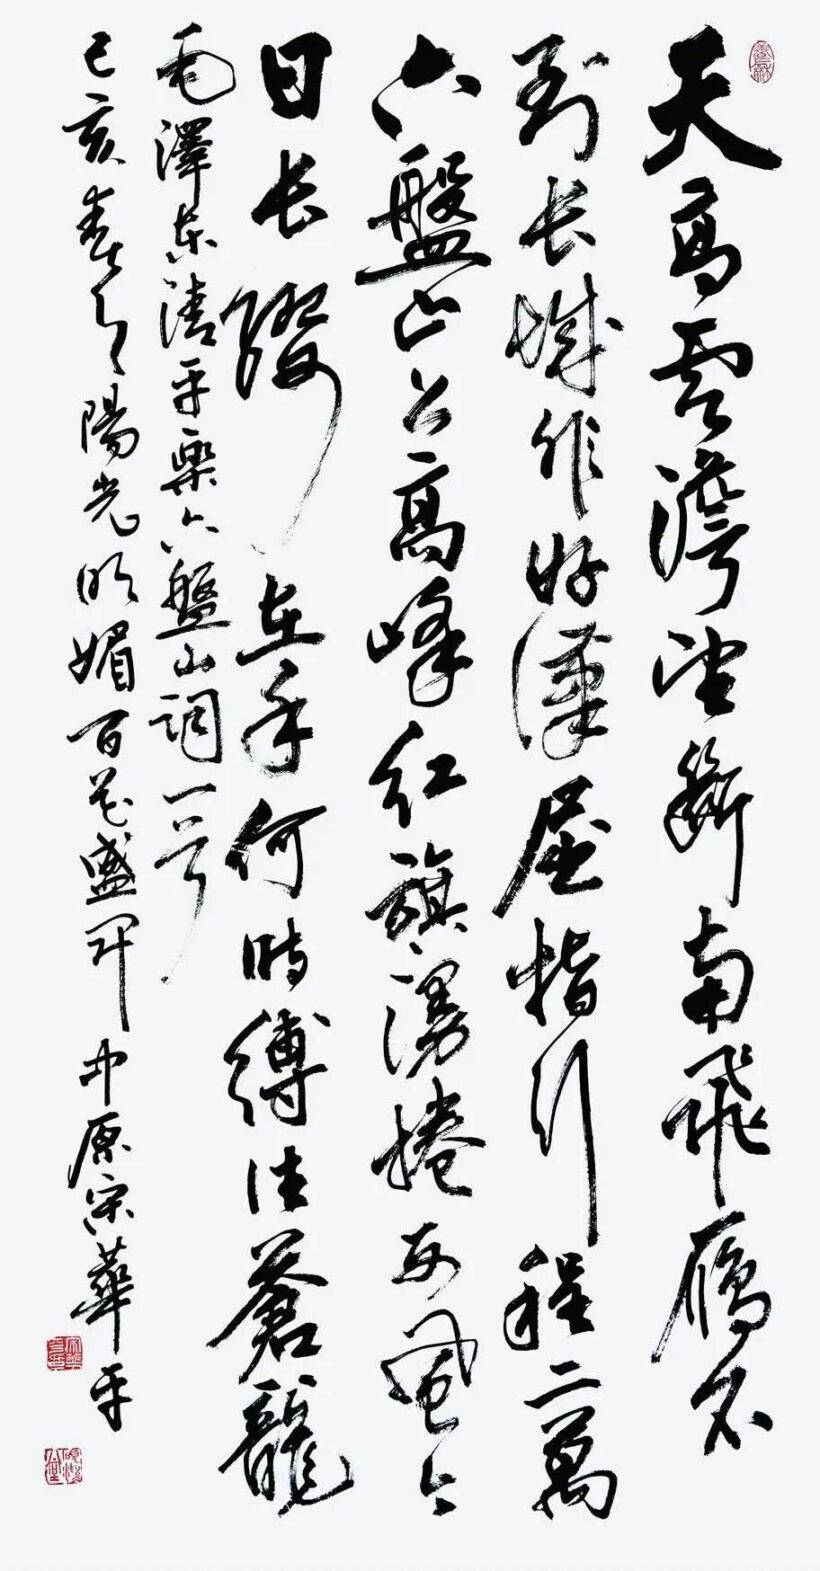 天高雲澹望斷南飛雁不
到长城非好漢屈指行程二萬
六盤山上高峰红旗漫捲西風今
日长纓在手何時縛住蒼龍
毛澤东清平樂六盤山詞一首
己亥春月陽光明媚百花盛開中原宋華平